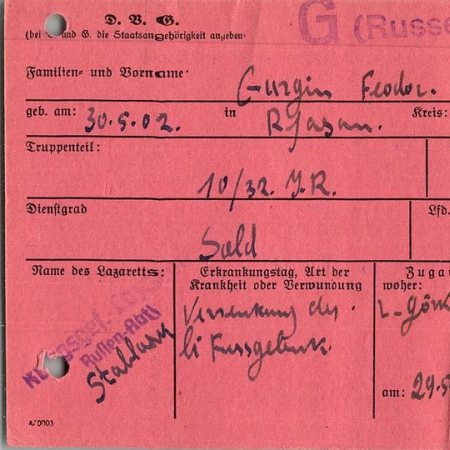 D. V. G.
G (Russe
(bei V und G. die Staatsangehörigkeit angeben
Familien- und Vorname
Gurgin Feodor.
geb. am: 30.5.02. in Rjasan. Kreis:
Truppenteil:
10/32. J.R.
Dienstgrad
Lfd.
Sold
Name des Lazaretts:
Erkrankungstag, Art der
Krankheit oder Verwundung
Zuga
woher:
Russen-Abtl
des
li
am: 29.5